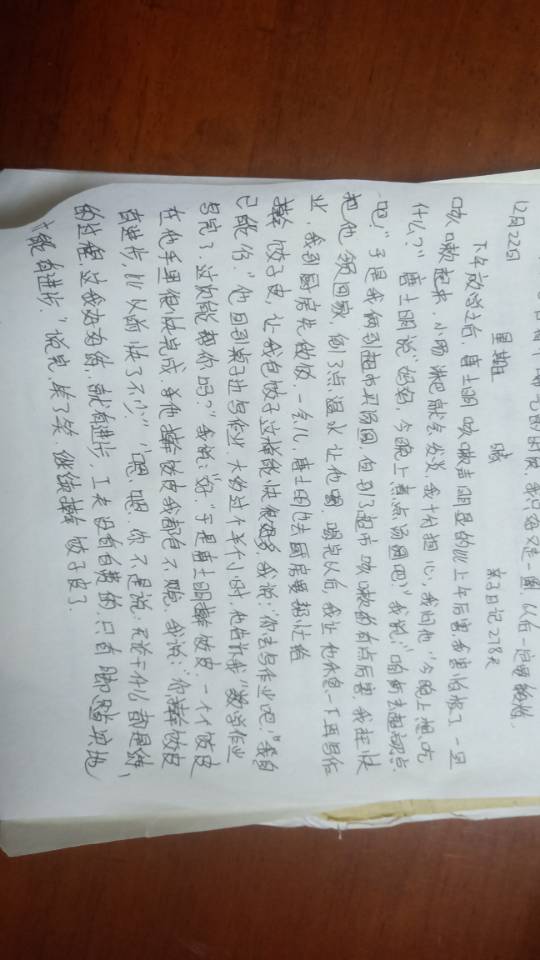 以后一定要
12月22日 星期五 晴 亲子日记278天
下午放学之后,唐士明咳嗽声明显的比上午厉害,我害怕极了一旦
咳嗽起来,小肠疝气就会发炎,我十分担心,我问他“今晚上想吃
什么?”唐士明说“妈妈,今晚上煮点汤圆吧?”我说:“咱俩去超市买点
吧。”于是我俩到超市买汤圆,但到了超市咳嗽的有点厉害,我赶快
把他领回家,倒了点温水让他喝,喝完以后,我让他休息一下再写作
业,我到厨房先做饭,一会儿,唐士明也去厨房要帮忙给
擀饺子皮,让我包饺子这样能快很多,我说:“你去写作业吧,我自
己能行。”他回到桌子边写作业,大约过了半个小时,他告诉我“数学作业
写完了,这次能帮你吗?”我说:“好”于是唐士明擀饺皮,一个个饺皮
在他手里很快完成,等他擀饺皮我都包不跑,我说:“你擀饺皮
有进步,比以前快了不少。”“嗯,嗯,你不是说:无论干什么都是练
的过程,这我为练,就有进步,工夫没有白费的,只有脚踏实地
才能有进步。”说完,笑了笑,继续擀饺子皮了。